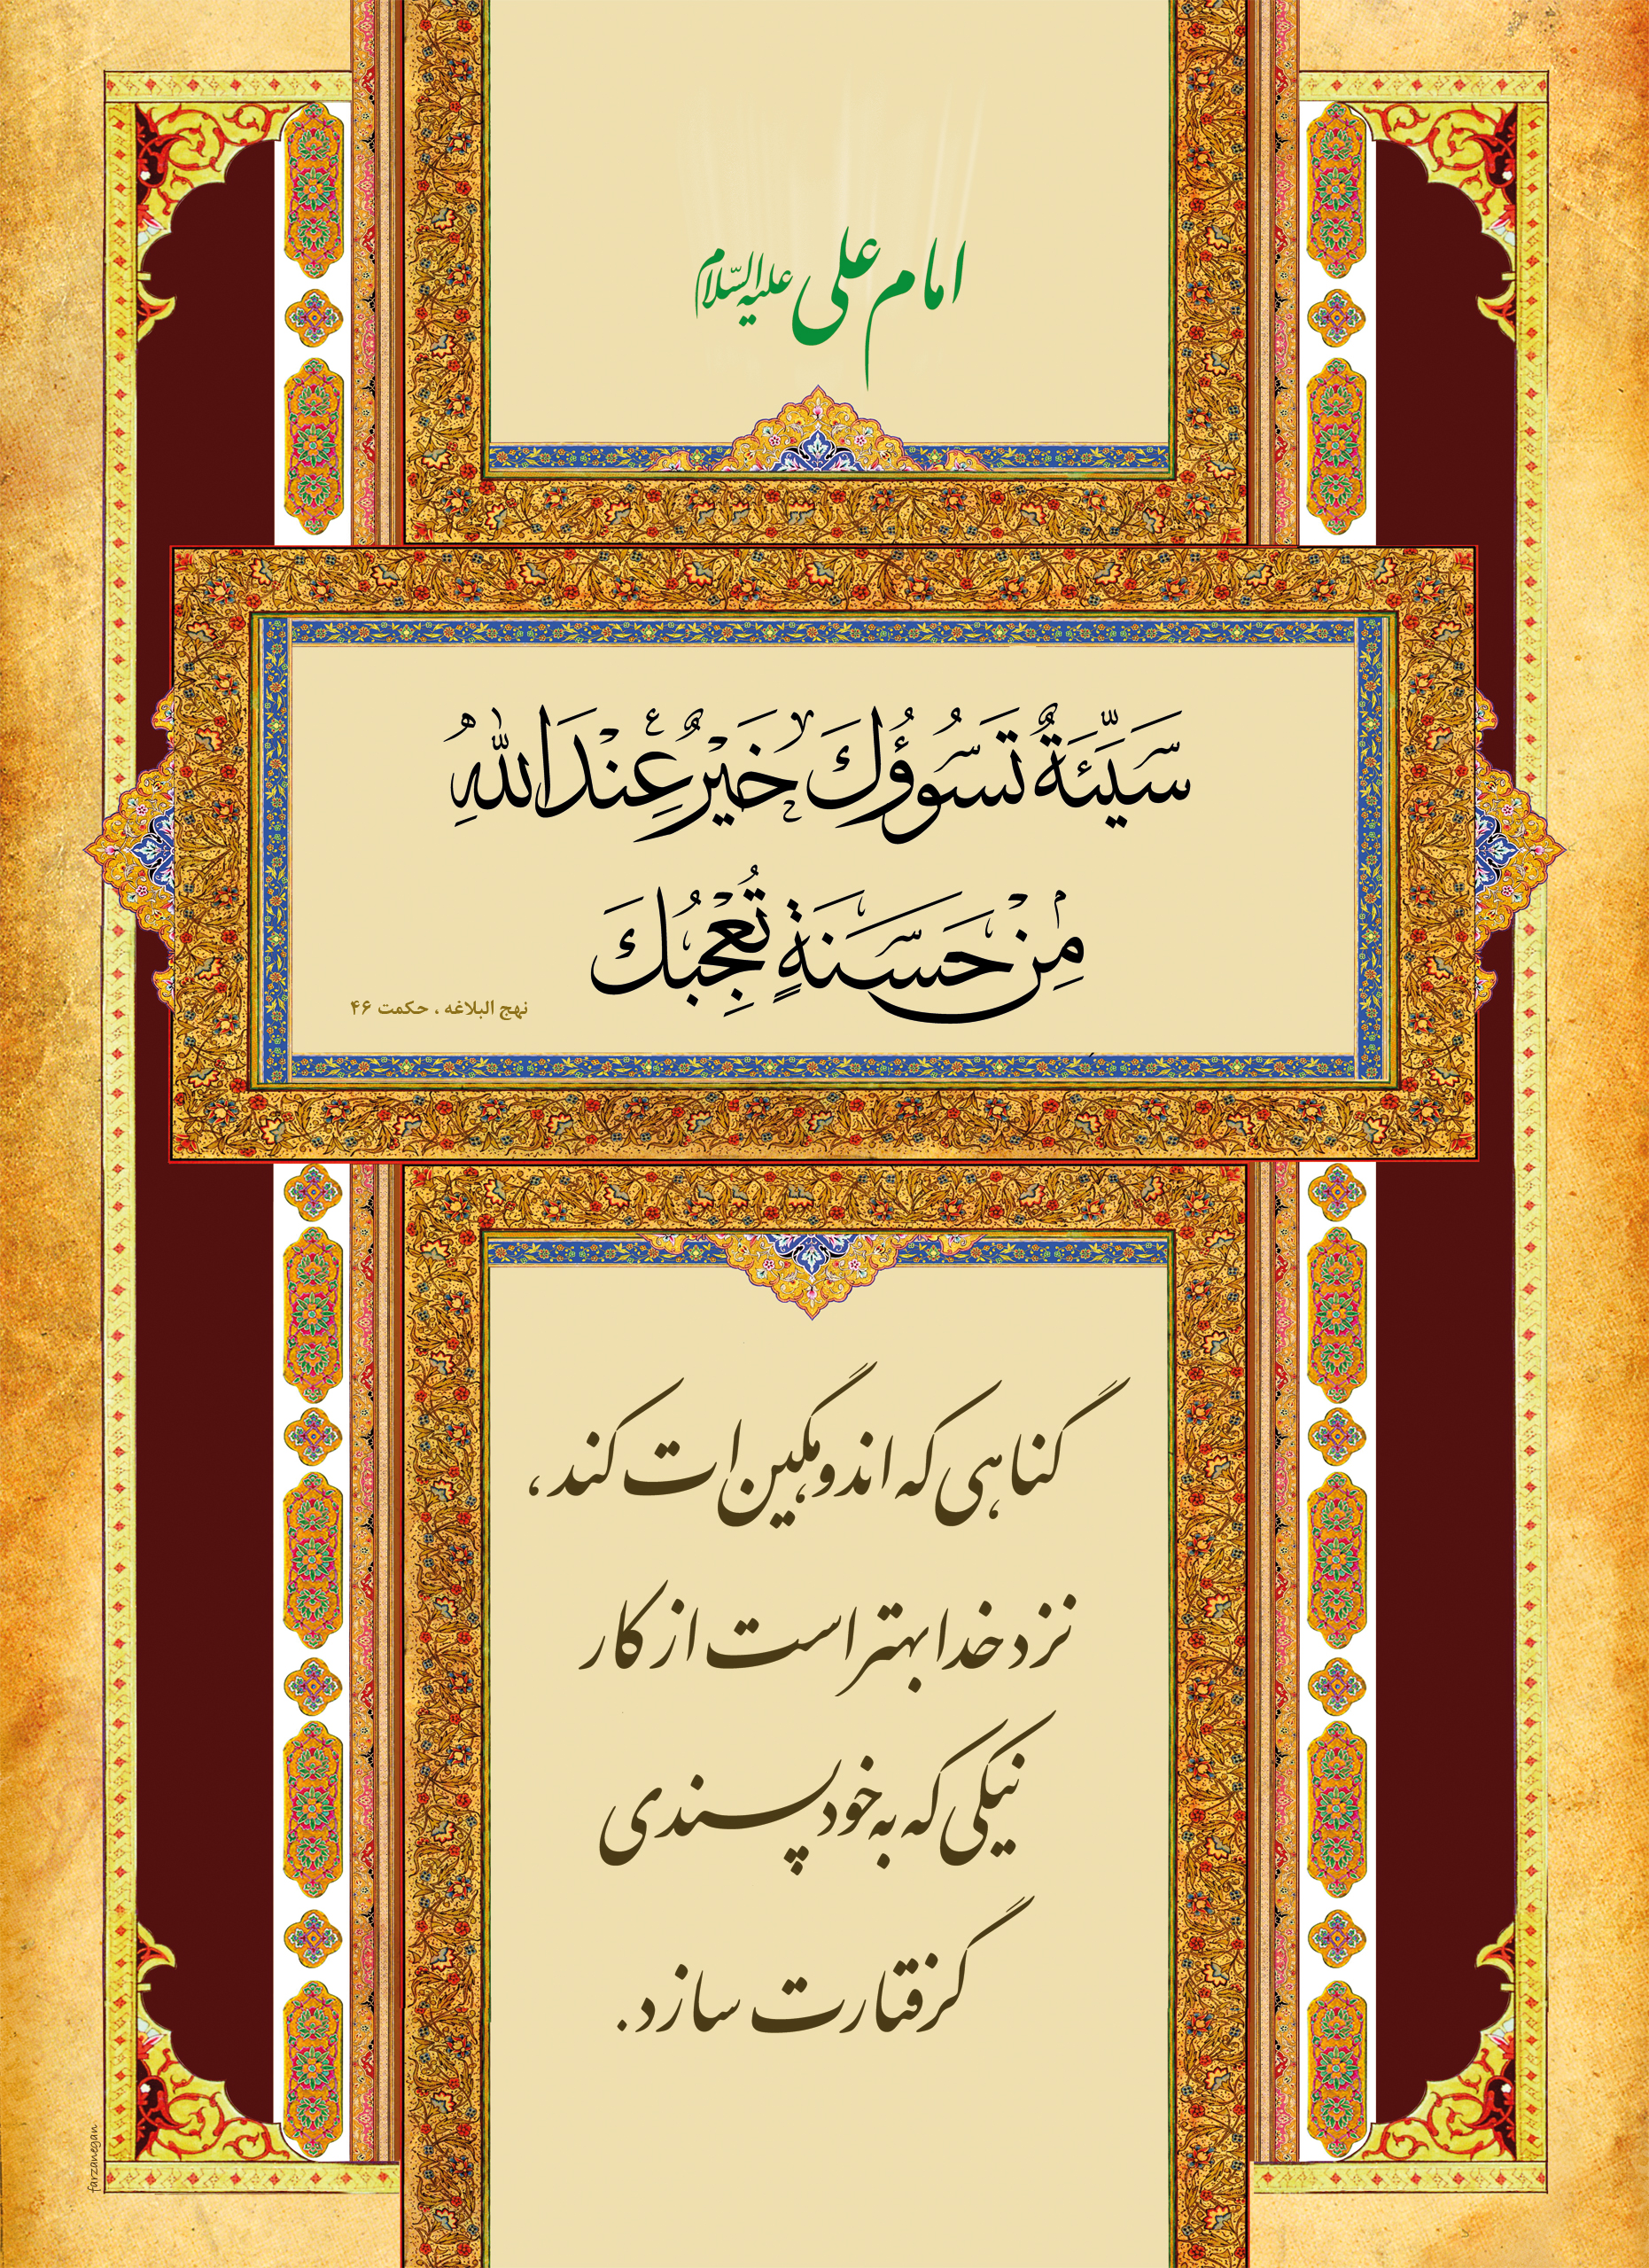 امام علی علیه السّلام
سَيِّئَةٌ تَسُوؤُكَ خَيْرٌ عِنْدَ اللهِ
مِنْ حَسَنَةٍ تُعْجِبُكَ
نهج البلاغه ، حکمت ۴۶
گناهی که اندوهگین ات کند،
نزد خدا بهتر است از کار
نیکی که به خودپسندی
گرفتارت سازد.
farzanegan